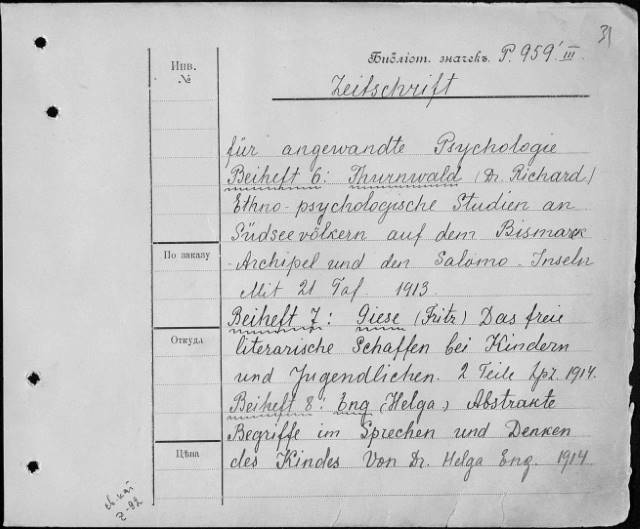 31
Библіот. значекъ P. 959' III
Инв.
№
Zeitschrift
für angewandte Psychologie
Beiheft 6: Thurnwald (Dr. Richard)
Ethno-psychologische Studien an
Südseevölkern auf dem Bismark
Archipel und den Salomo-Inseln
По заказу
Mit 21 Taf. 1913.
Beiheft 7: Giese (Fritz) Das freie
Откуда
literarische Schaffen bei Kindern
und Jugendlichen. 2 Teile Lpz. 1914.
Beiheft 8: Eng (Helga) Abstrakte
Begriffe im Sprechen und Denken
Цѣна
des Kindes Von Dr. Helga Eng. 1914